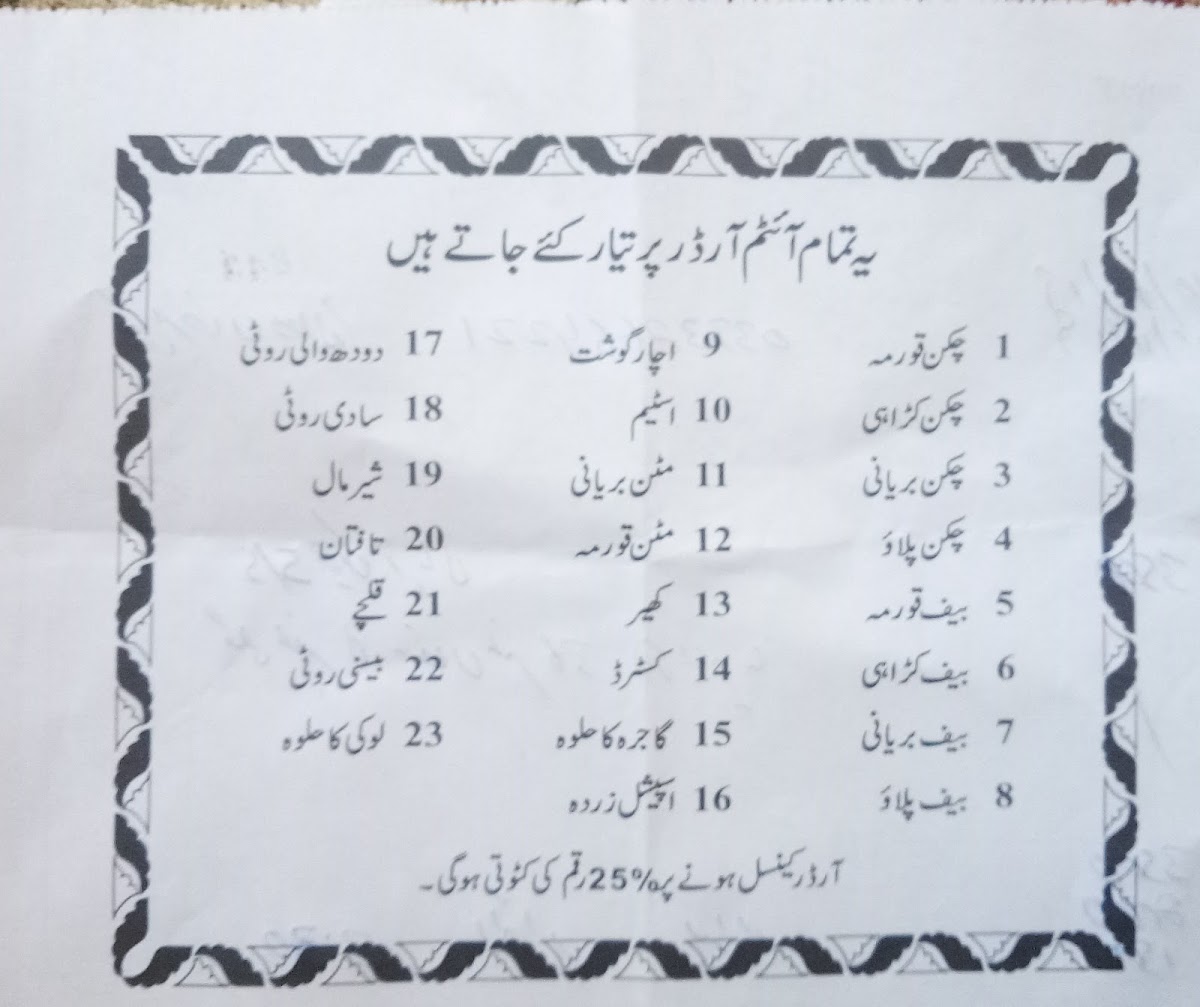 یہ تمام آئٹم آرڈر پر تیار کئے جاتے ہیں
1 چکن قورمہ
2 چکن کڑاہی
3 چکن بریانی
4 چکن پلاؤ
5 بیف قورمہ
6 بیف کڑاہی
7 بیف بریانی
8 بیف پلاؤ
9 اچار گوشت
10 اسٹیم
11 مٹن بریانی
12 مٹن قورمہ
13 کھیر
14 کسٹرڈ
15 گاجرہ کا حلوہ
16 اسپیشل زردہ
17 دودھ والی روٹی
18 سادی روٹی
19 شیر مال
20 تافتان
21 قلچے
22 بیسنی روٹی
23 لوکی کا حلوہ
آرڈر کینسل ہونے پر 25% رقم کی کٹوتی ہوگی۔